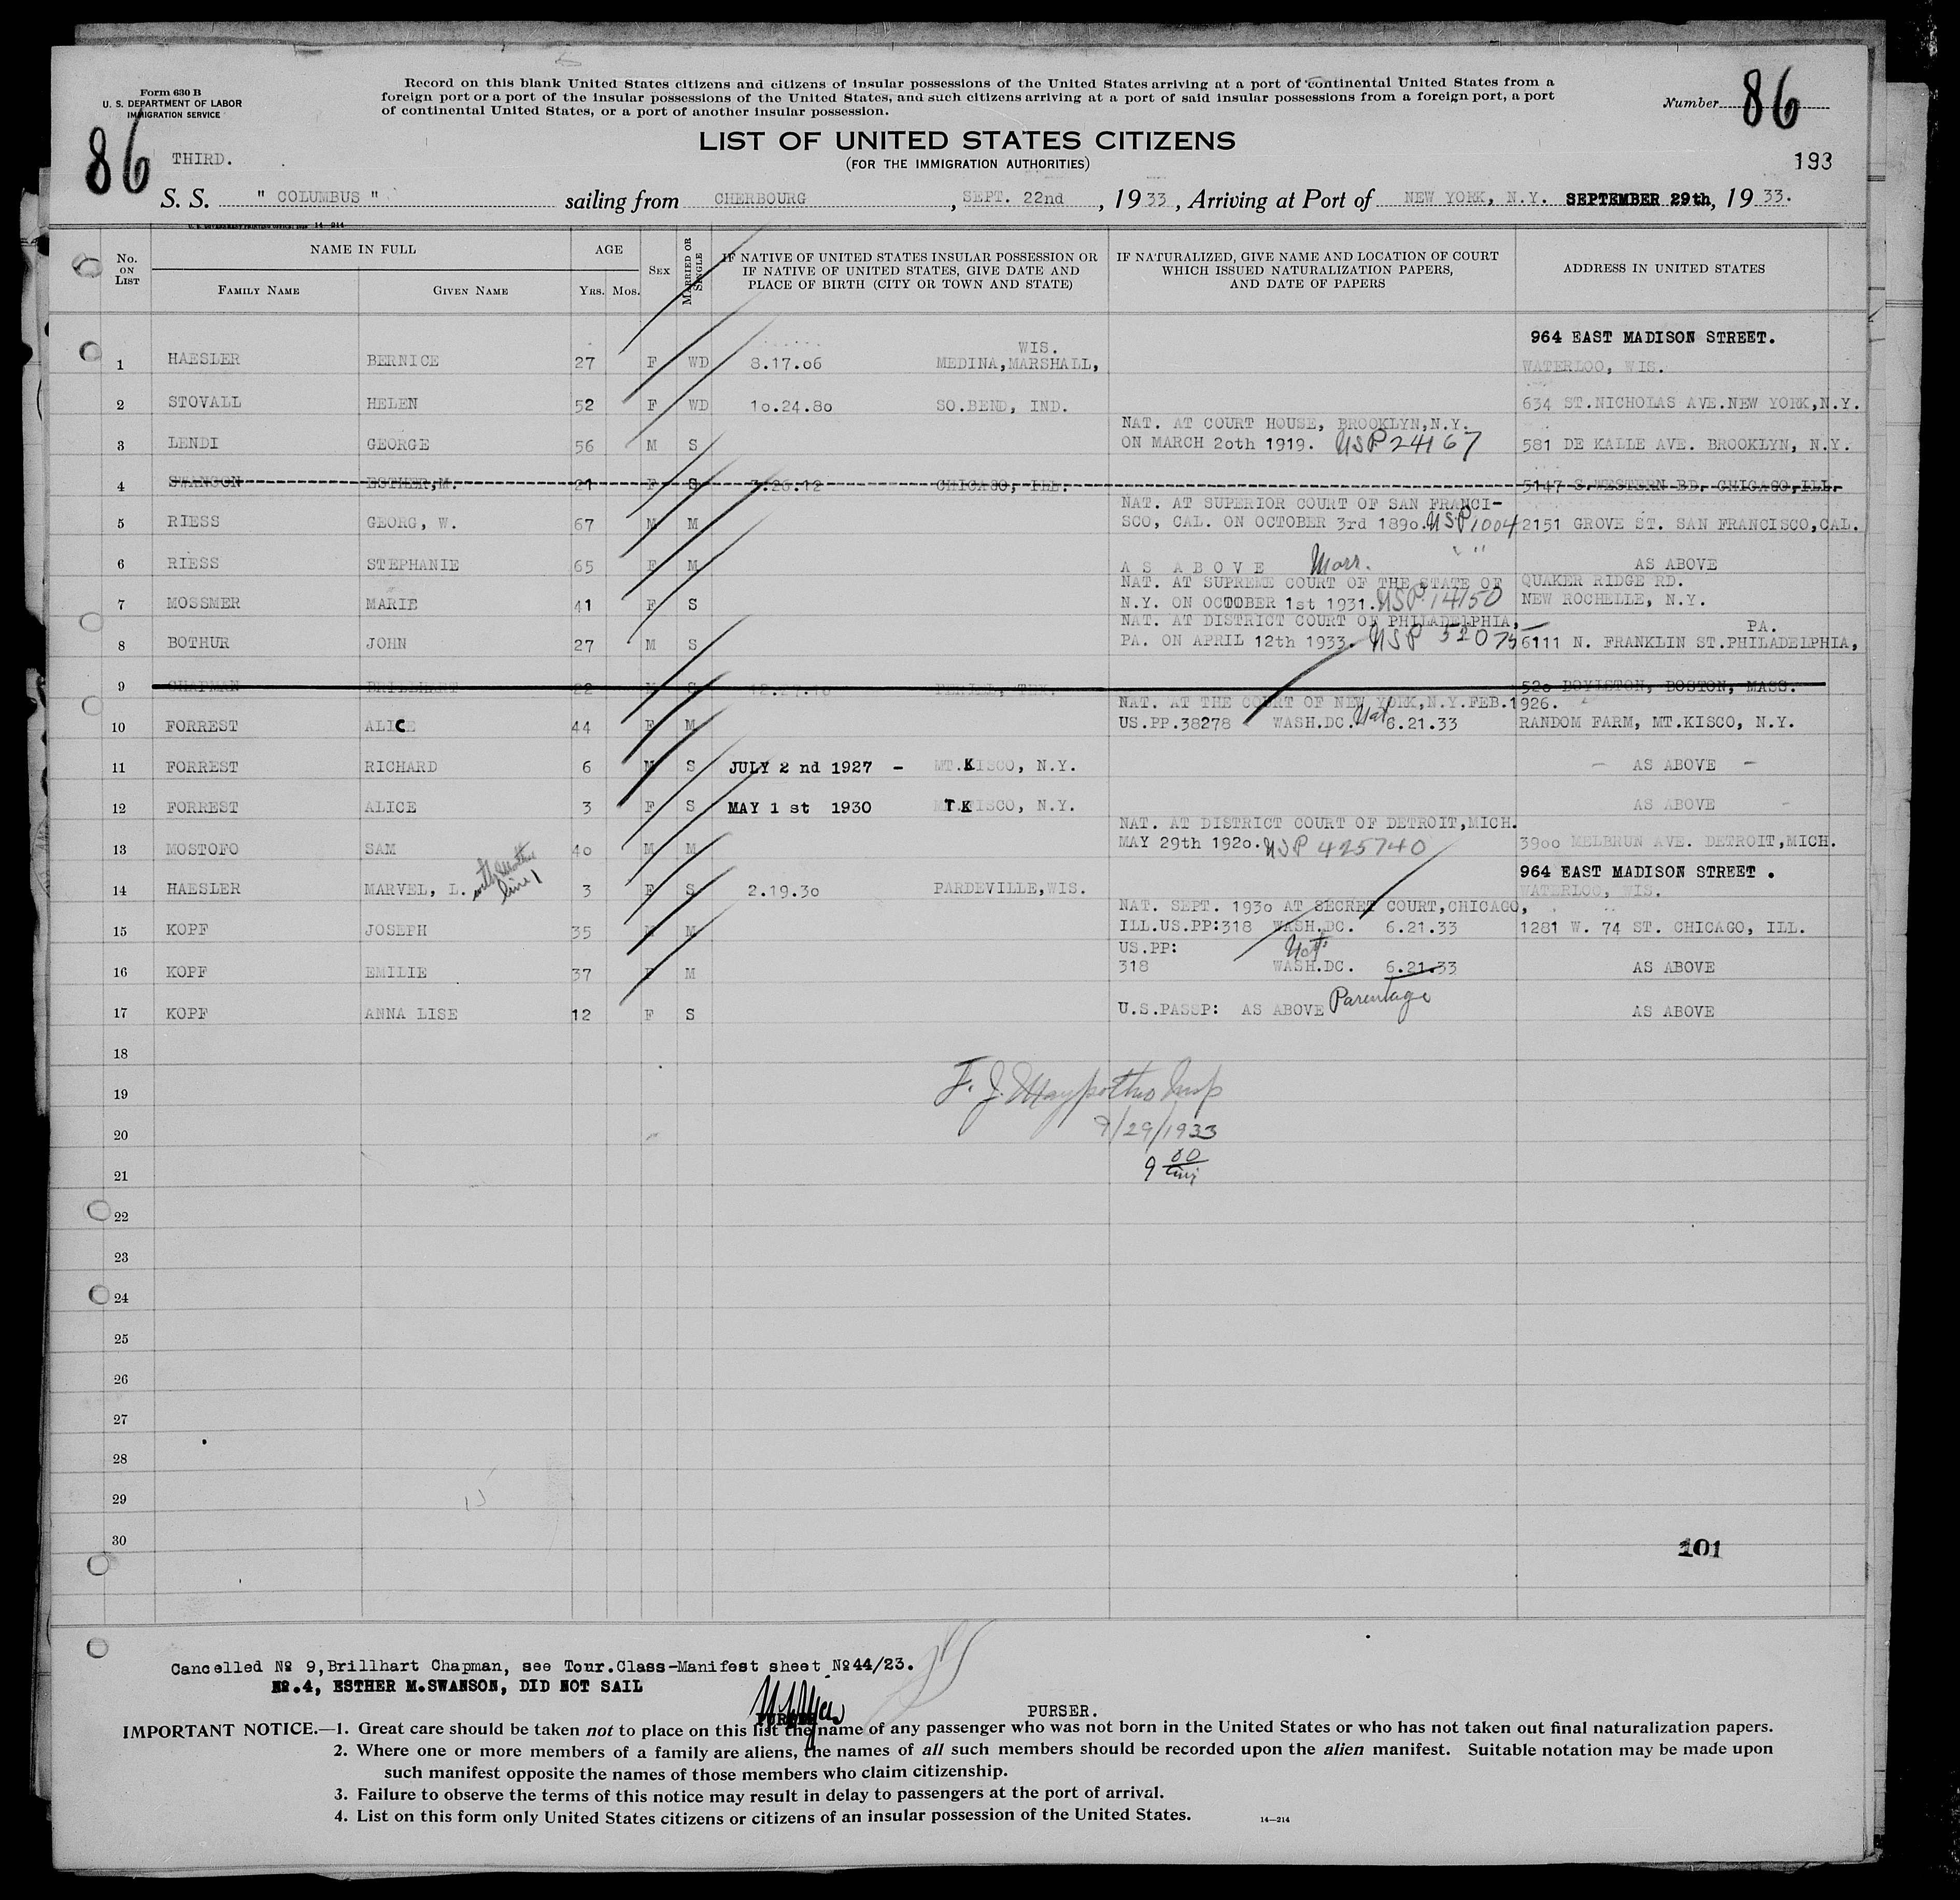 Form 630 B
U. S. DEPARTMENT OF LABOR
IMMIGRATION SERVICE
Record on this blank United States citizens and citizens of insular possessions of the United States arriving at a port of continental United States from a
foreign port or a port of the insular possessions of the United States, and such citizens arriving at a port of said insular possessions from a foreign port, a port
of continental United States, or a port of another insular possession.
Number 86
86 THIRD.
LIST OF UNITED STATES CITIZENS
(FOR THE IMMIGRATION AUTHORITIES)
193
S. S. " COLUMBUS " sailing from CHERBOURG, SEPT. 22nd, 1933, Arriving at Port of NEW YORK, N.Y. SEPTEMBER 29th, 1933.
U. S. GOVERNMENT PRINTING OFFICE: 14-214
No. ON LIST NAME IN FULL FAMILY NAME GIVEN NAME AGE YRS. MOS. SEX MARRIED OR SINGLE
IF NATIVE OF UNITED STATES INSULAR POSSESSION OR
IF NATIVE OF UNITED STATES, GIVE DATE AND
PLACE OF BIRTH (CITY OR TOWN AND STATE)
IF NATURALIZED, GIVE NAME AND LOCATION OF COURT
WHICH ISSUED NATURALIZATION PAPERS,
AND DATE OF PAPERS
ADDRESS IN UNITED STATES
WIS. 964 EAST MADISON STREET.
1 HAESLER BERNICE 27 F WD 8.17.06 MEDINA,MARSHALL, WATERLOO, WIS.
2 STOVALL HELEN 52 F WD 1o.24.8o SO.BEND, IND. 634 ST.NICHOLAS AVE.NEW YORK,N.Y.
NAT. AT COURT HOUSE, BROOKLYN,N.Y.
3 LENDI GEORGE 56 M S ON MARCH 2oth 1919. USP 24167 581 DE KALLE AVE. BROOKLYN, N.Y.
4 SWANSON ESTHER,M. 21 F S 3.26.12 CHICAGO, ILL. 5147 S.WESTERN BD. CHICAGO,ILL.
NAT. AT SUPERIOR COURT OF SAN FRANCI-
5 RIESS GEORG, W. 67 M M SCO, CAL. ON OCTOBER 3rd 189o. USP 1004 2151 GROVE ST. SAN FRANCISCO,CAL.
6 RIESS STEPHANIE 65 F M A S A B O V E Marr. " " AS ABOVE
NAT. AT SUPREME COURT OF THE STATE OF QUAKER RIDGE RD.
7 MOSSMER MARIE 41 F S N.Y. ON OCTOBER 1st 1931. USP 14150 NEW ROCHELLE, N.Y.
NAT. AT DISTRICT COURT OF PHILADELPHIA, PA.
8 BOTHUR JOHN 27 M S PA. ON APRIL 12th 1933. USP 52075 6111 N. FRANKLIN ST.PHILADELPHIA,
9 CHAPMAN BRILLHART 22 S 52o BOYLSTON, BOSTON, MASS.
NAT. AT THE COURT OF NEW YORK,N.Y.FEB.1926.
10 FORREST ALICE 44 F M US.PP.38278 WASH.DC. Nat 6.21.33 RANDOM FARM, MT.KISCO, N.Y.
11 FORREST RICHARD 6 M S JULY 2 nd 1927 - MT.KISCO, N.Y. - AS ABOVE -
12 FORREST ALICE 3 F S MAY 1 st 1930 MT.KISCO, N.Y. AS ABOVE -
NAT. AT DISTRICT COURT OF DETROIT,MICH.
13 MOSTOFO SAM 4o M M MAY 29th 192o. USP 425740 39oo MELBRUN AVE. DETROIT,MICH.
with mother line 1 964 EAST MADISON STREET .
14 HAESLER MARVEL, L. 3 F S 2.19.3o PARDEVILLE,WIS. WATERLOO, WIS.
NAT. SEPT. 193o AT SECRET COURT,CHICAGO,
15 KOPF JOSEPH 35 M M ILL.US.PP:318 WASH.DC. 6.21.33 1281 W. 74 ST. CHICAGO, ILL.
US.PP: Nat
16 KOPF EMILIE 37 F M 318 WASH.DC. 6.21.33 AS ABOVE
17 KOPF ANNA LISE 12 F S U.S.PASSP: AS ABOVE Parentage AS ABOVE
18
19
20 9/29/1933
21 9 00
22
23
24
25
26
27
28
29
30
101
Cancelled № 9,Brillhart Chapman, see Tour.Class-Manifest sheet №44/23.
№.4, ESTHER M.SWANSON, DID NOT SAIL
PURSER
PURSER.
IMPORTANT NOTICE.—1. Great care should be taken not to place on this list the name of any passenger who was not born in the United States or who has not taken out final naturalization papers.
2. Where one or more members of a family are aliens, the names of all such members should be recorded upon the alien manifest. Suitable notation may be made upon
such manifest opposite the names of those members who claim citizenship.
3. Failure to observe the terms of this notice may result in delay to passengers at the port of arrival.
4. List on this form only United States citizens or citizens of an insular possession of the United States.
14—214